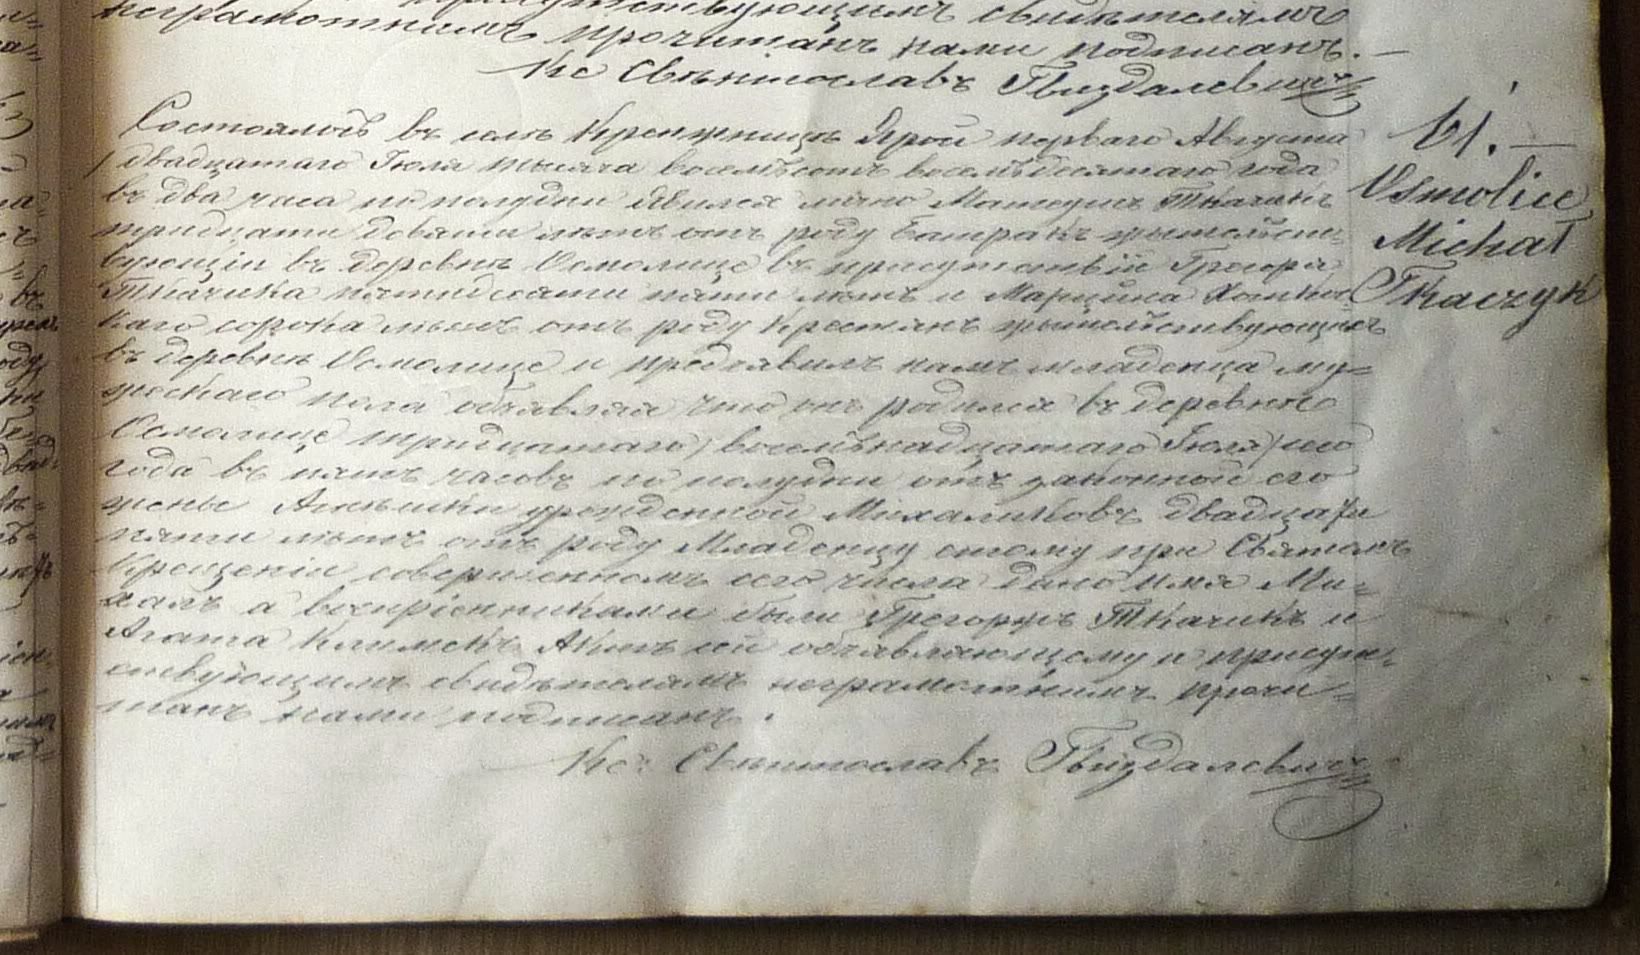 присутствующимъ свидѣтелямъ
неграмотнымъ прочитанъ нами подписанъ. —
Кс Свѣнтославъ Гвиздалевичъ
61. —
Osmolice
Michał
Tkaczyk
Состоялось въ селѣ Крженжницѣ Ярой перваго Августа
/ двадцатаго Іюля тысяча восемьсотъ восемьдесятаго года
въ два часа по полудни явился лично Матеушъ Ткачикъ
тридцати девяти лѣтъ отъ роду батракъ жительст-
вующій въ деревнѣ Осмолице въ присутствіи Грегора
Ткачика пятидесяти пяти лѣтъ и Марцина
каго сорока лѣтъ отъ роду крестянъ жительствующихъ
въ деревнѣ Осмолице и предявилъ намъ младенца му-
жескаго пола объявляя что онъ родился въ деревнѣ
Осмолице тридцатаго / восемьнадцатаго Іюля / сего
года въ пять часовъ по полудни отъ законной его
жены Агнѣшки урожденной Михаликовъ двадцати
пяти лѣтъ отъ роду Младенцу этому при Святомъ
Крещеніи совершенномъ сего числа дано имя Ми-
халъ а воспріемниками были Грегоржъ Ткачикъ и
Агата Климекъ Актъ сей объявляющему и присут-
ствующимъ свидѣтелямъ неграмотнымъ прочи-
танъ нами подписанъ.
Кс: Свѣнтославъ Гвиздалевичъ